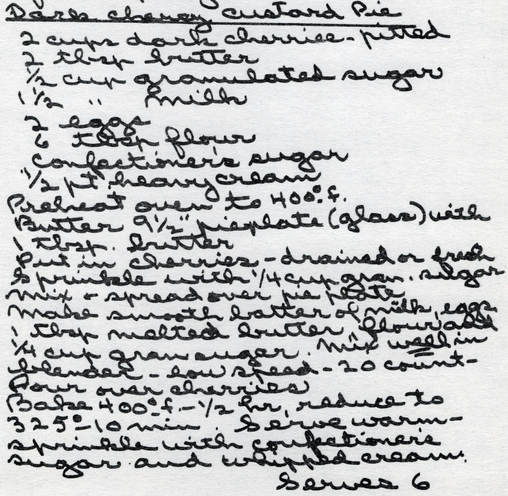 Dark cherry custard Pie
2 cups dark cherries - pitted
2 tbsp butter
1/2 cup granulated sugar
1 1/2 " milk
2 eggs
6 tbsp flour
Confectioners sugar
1/2 pt. heavy cream
Preheat oven to 400° f.
Butter 9 1/2" pieplate (glass) with
1 tbsp. butter
Put in cherries - drained or fresh
Sprinkle with 1/4 cup gran. sugar
Mix + spread over pie plate
Make smooth batter of milk, eggs
1 tbsp melted butter, flour and
1/4 cup gran sugar. Mix well in
blender - low speed - 20 count -
Pour over cherries
Bake 400° f. - 1/2 hr, reduce to
325° - 10 min. Serve warm -
sprinkle with confectioners
sugar and whipped cream.
Serves 6